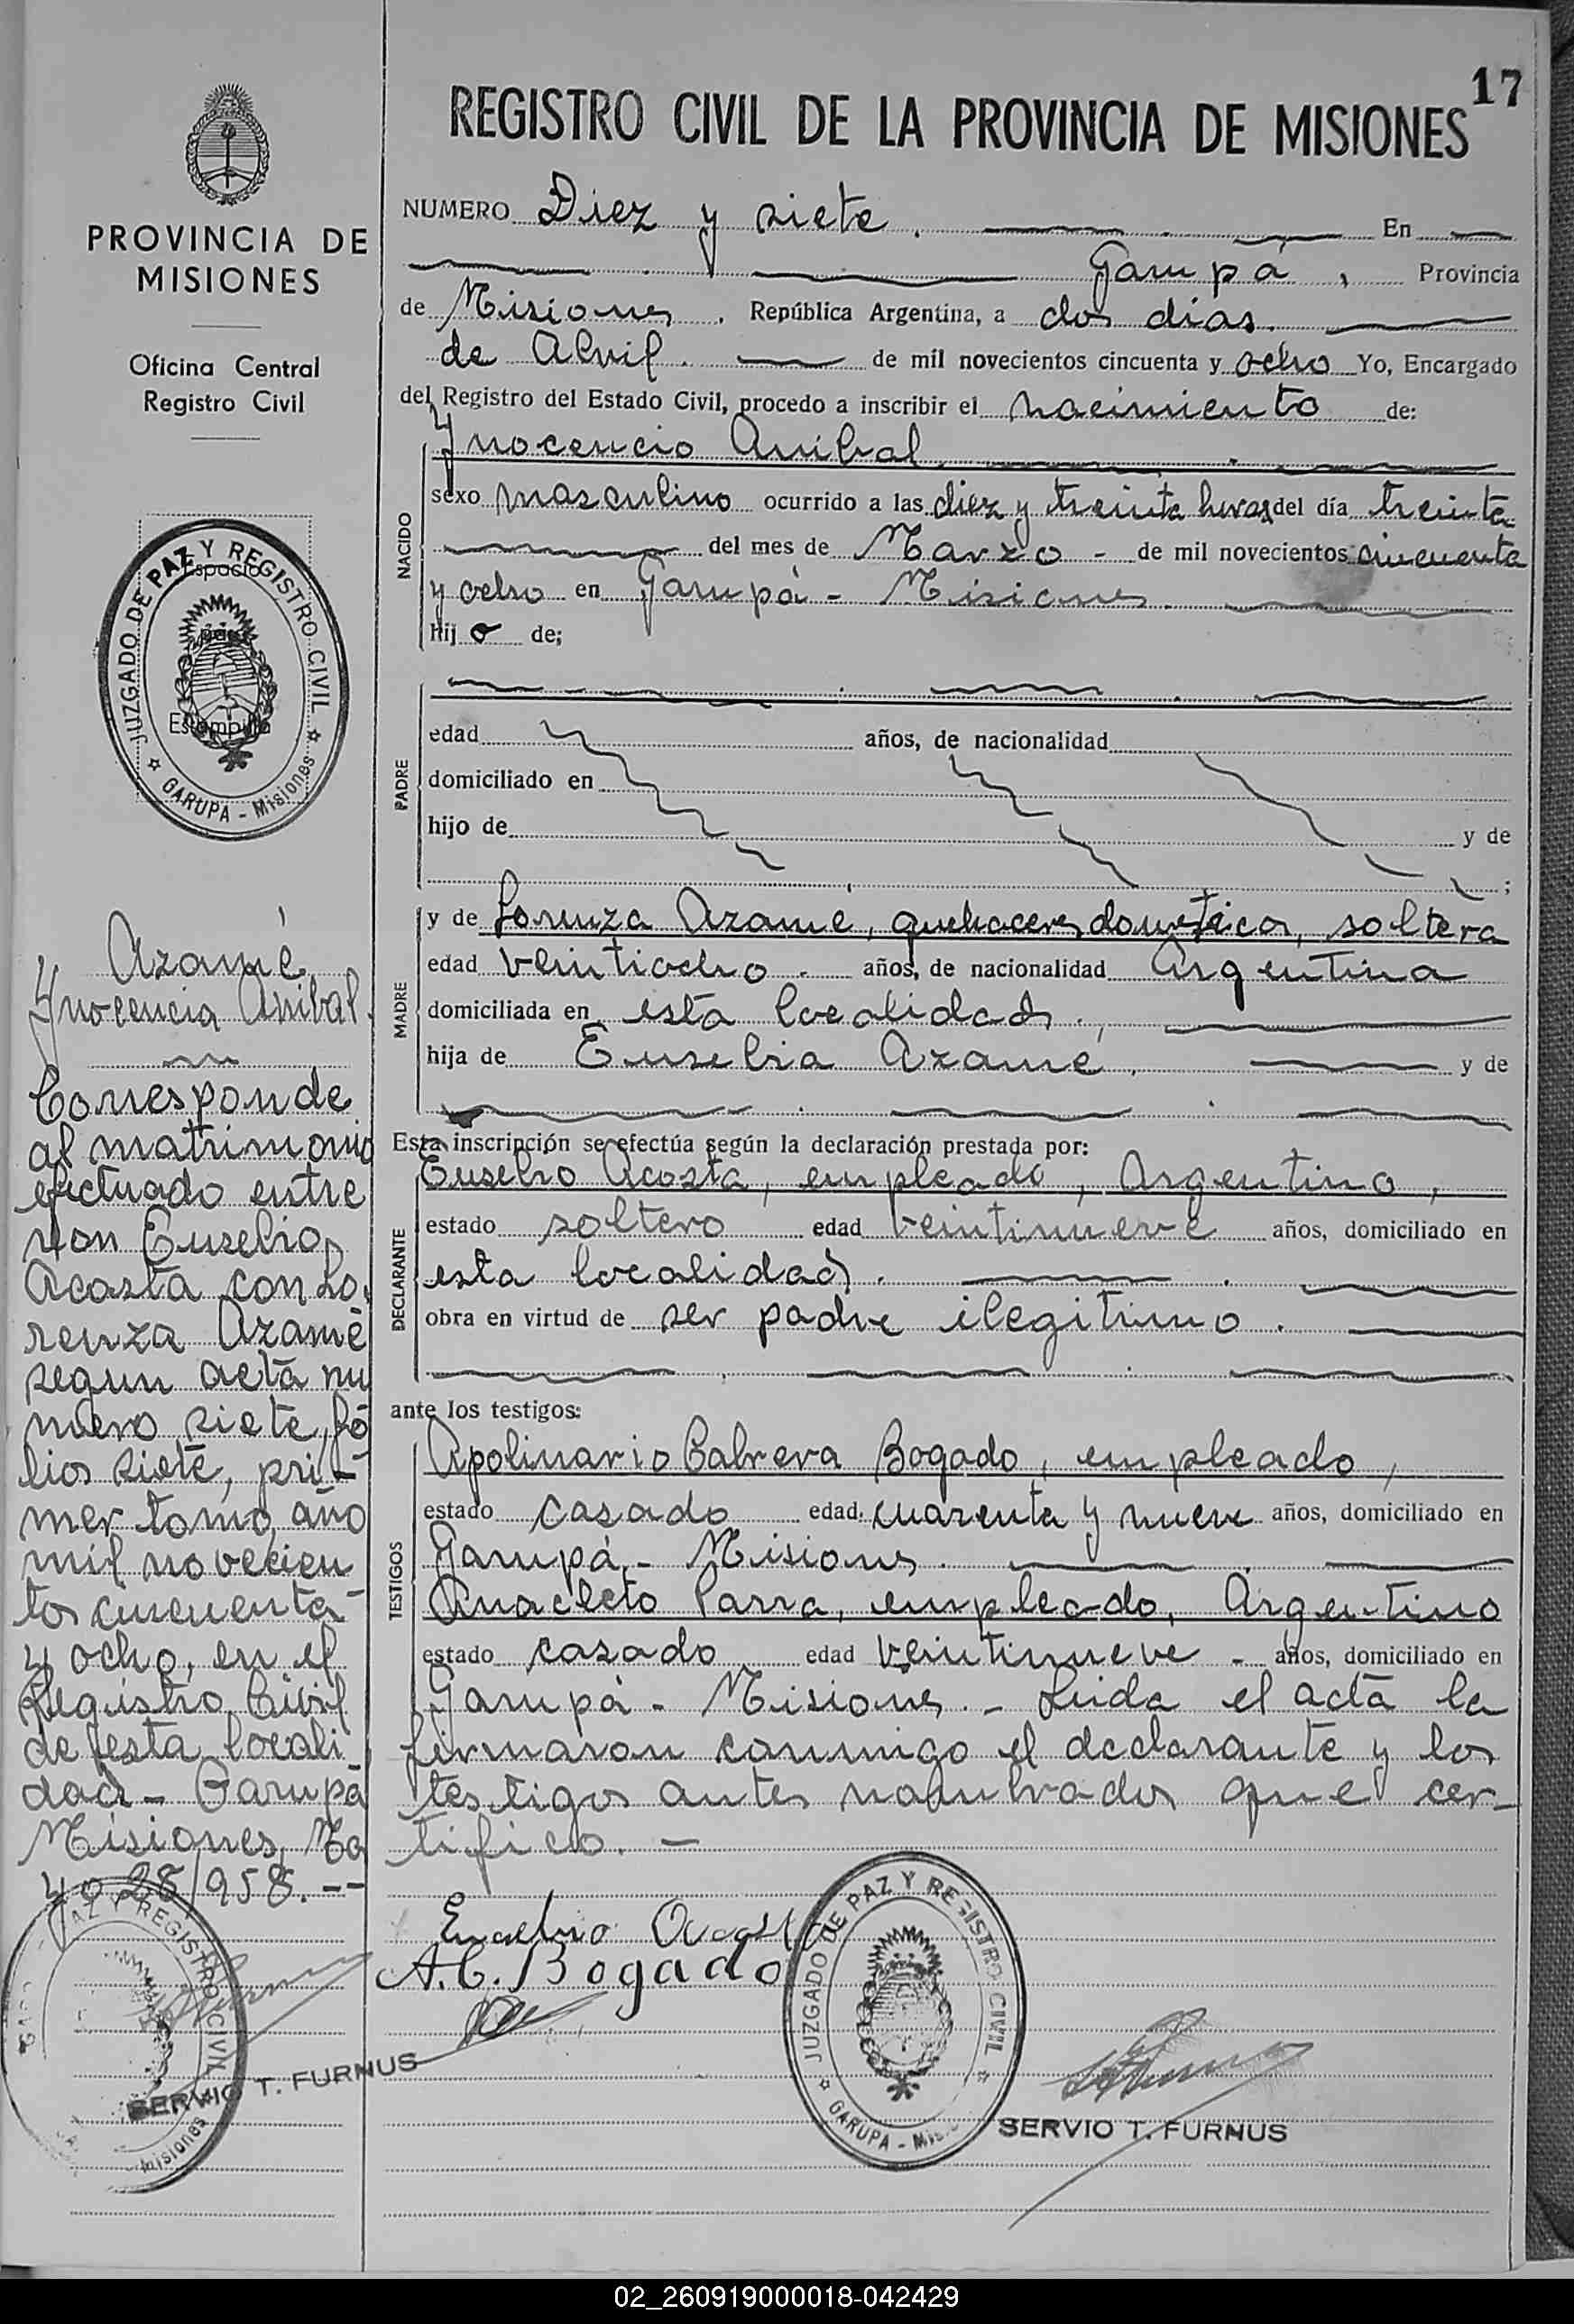 17
REGISTRO CIVIL DE LA PROVINCIA DE MISIONES
PROVINCIA DE
MISIONES
Oficina Central
Registro Civil
JUZGADO DE PAZ Y REGISTRO CIVIL
Espacio
para
Estampilla
GARUPA - Misiones
Azamé,
Ynocencia Anibal.
Corresponde
al matrimonio
efectuado entre
don Eusebio
Acosta con Lo
renza Azamé
segun acta nu
mero siete, fo
lios siete, pri-
mer tomo, año
mil novecien
tos cincuenta
y ocho, en el
Registro Civil
de esta locali
dad - Garupá
Misiones, Ma
yo 28/958. --
PAZ Y REGISTRO CIVIL
Misiones
SERVIO T. FURNUS
NUMERO Diez y siete. En
Garupá, Provincia
de Misiones. República Argentina, a dos dias.
de Abril. de mil novecientos cincuenta y ocho Yo, Encargado
del Registro del Estado Civil, procedo a inscribir el nacimiento de:
NACIDO
Ynocencio Anibal.
sexo masculino ocurrido a las diez y treinta horas del día treinta
del mes de Marzo - de mil novecientos cincuenta
y ocho en Garupá - Misiones.
hijo de;
PADRE
edad años, de nacionalidad
domiciliado en
hijo de y de
;
MADRE
y de Lorenza Azamé, quehaceres domésticos, soltera
edad veintiocho. años, de nacionalidad Argentina
domiciliada en esta localidad.
hija de Eusebia Azamé, y de
Esta inscripción se efectúa según la declaración prestada por:
DECLARANTE
Eusebio Acosta, empleado, Argentino,
estado soltero edad veintinueve años, domiciliado en
esta localidad.
obra en virtud de ser padre ilegitimo.
ante los testigos:
TESTIGOS
Apolinario Cabrera Bogado, empleado,
estado casado edad cuarenta y nueve años, domiciliado en
Garupá - Misiones.
Anacleto Parra, empleado, Argentino
estado casado edad veintinueve - años, domiciliado en
Garupá - Misiones. - Leida el acta la
firmaron conmigo el declarante y los
testigos antes nombrados que cer-
tifico. -
Eusebio Acosta
A. C. Bogado
JUZGADO DE PAZ Y REGISTRO CIVIL
GARUPA - Mis
SERVIO T. FURNUS
02_260919000018-042429